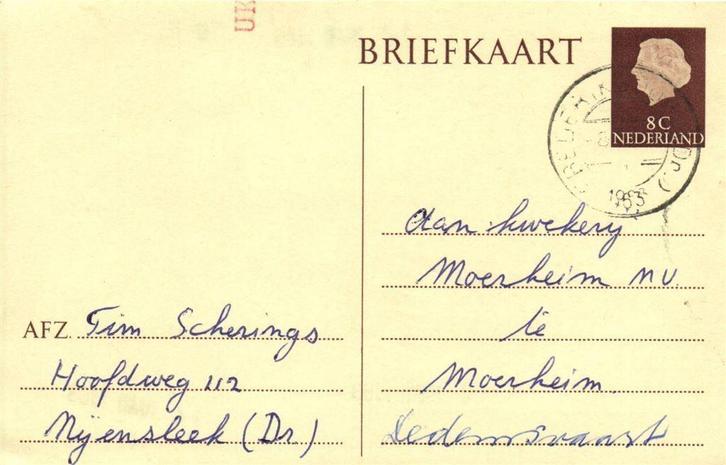 BRIEFKAART
8C
NEDERLAND
1963
Aan kwekery
Moerheim N.V.
te
Moerheim
Dedemsvaart
AFZ. Tim Scherings
Hoofdweg 112
Nijensleek (Dr.)